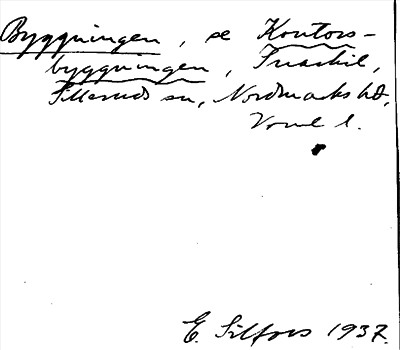 Byggningen, se Kontors-
byggningen, Snarkil,
Silleruds sn, Nordmarks hd,
Vrml l.
E. Silfors 1937.